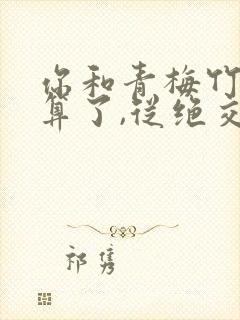 你和青梅竹
算了,从绝交
祁隽